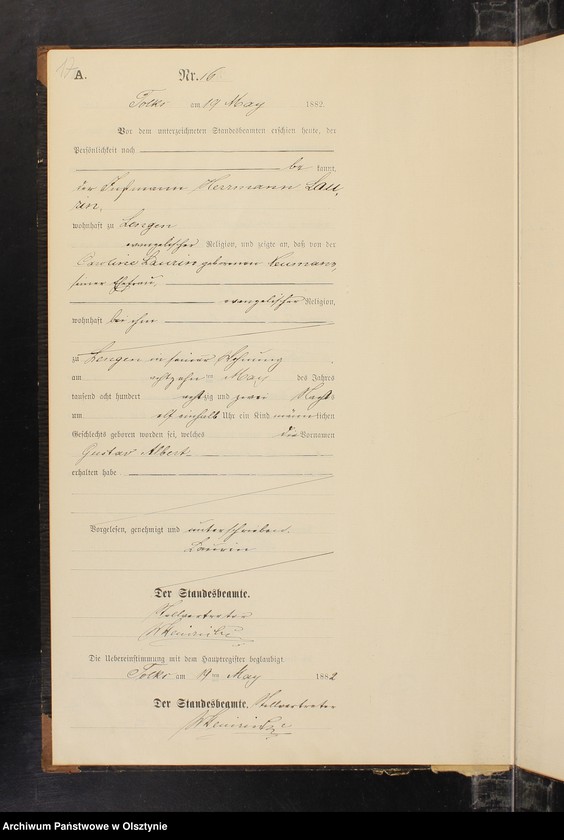 A.
Nr. 16
Tolks am 19 May 1882
Vor dem unterzeichneten Standesbeamten erschien heute, der
Persönlichkeit nach
be kannt,
der Insmann Herrmann Lau-
rin,
wohnhaft zu Lengen
evangelischer Religion, und zeigte an, daß von der
Caroline Laurin geborenen Neumann,
seiner Ehefrau,
evangelischer Religion,
wohnhaft bei ihm
zu Lengen in seiner Wohnung
am achtzehn ten May des Jahres
tausend acht hundert achtzig und zwei Nachts
um elf einhalb Uhr ein Kind männlichen
Geschlechts geboren worden sei, welches die Vornamen
Gustav Albert
erhalten habe
Vorgelesen, genehmigt und unterschrieben.
Laurin
Der Standesbeamte.
Stellvertreter
Die Uebereinstimmung mit dem Hauptregister beglaubigt
Tolks am 19ten May 1882
Der Standesbeamte. Stellvertreter
Archiwum Państwowe w Olsztynie